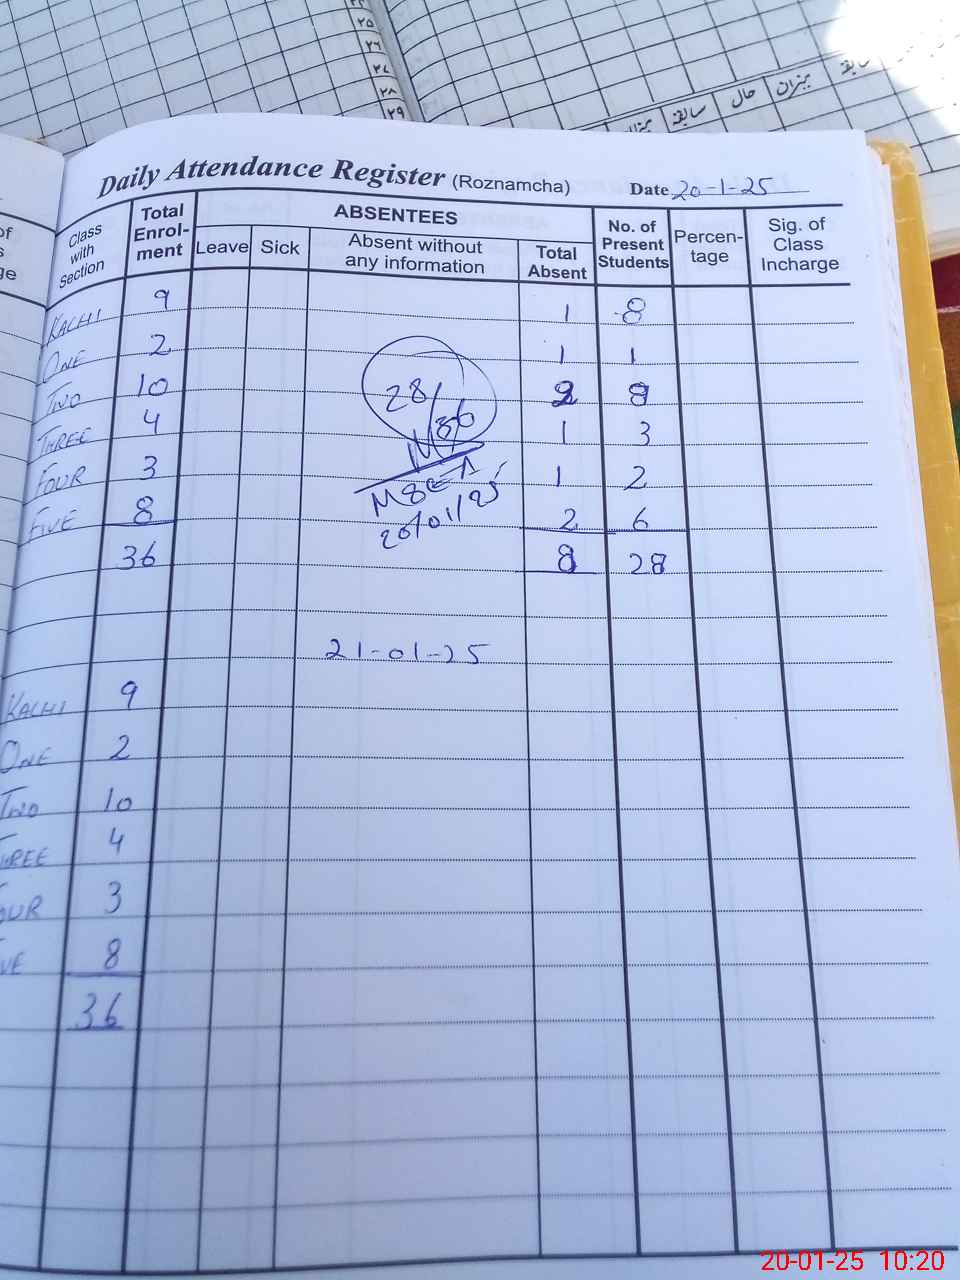 ۲۵
۲۶
۲۷
۲۸
۲۹
حال سابقہ
میزان حال سابقہ
Daily Attendance Register (Roznamcha) Date 20-1-25
Class with Section Total Enrol-ment ABSENTEES No. of Present Students Percen-tage Sig. of Class Incharge
Leave Sick Absent without any information Total Absent
KACHI 9 1 8
ONE 2 1 1
TWO 10 2 8
THREE 4 1 3
FOUR 3 1 2
FIVE 8 2 6
36 8 28
28/36
20/01/25
21-01-25
KACHI 9
ONE 2
TWO 10
THREE 4
FOUR 3
FIVE 8
36
20-01-25 10:20